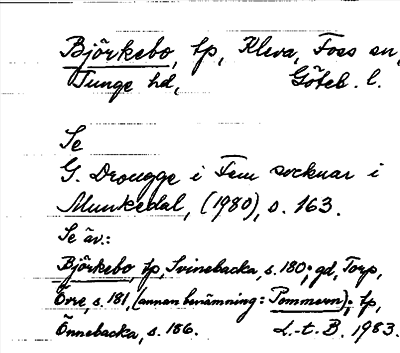 Björkebo, tp, Kleva, Foss sn,
Tunge hd, Göteb. l.
Se
G. Drougge i Fem socknar i
Munkedal, (1980), s. 163.
Se äv.:
Björkebo, tp, Svinebacka, s. 180; gd, Torp,
Övre, s. 181 (annan benämning: Pommern); tp,
Önnebacka, s. 186. L.-t. B. 1983.